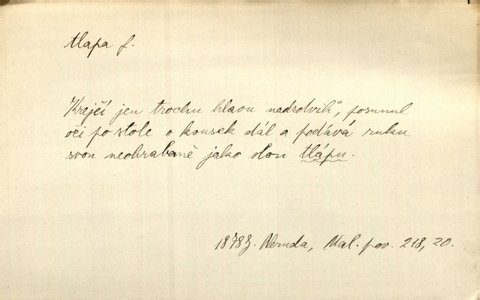 tlapa f.
Krejčí jen trochu hlavu nadzdvihl, posunul
oči po stole o kousek dál a podává ruku
svou neohrabaně jako slon tlápu.
1878 Neruda, Mal. pov. 218, 20.